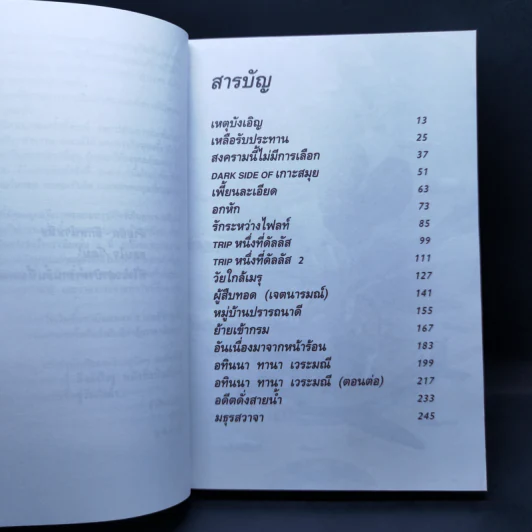 สารบัญ
เหตุบังเอิญ 13
เหลือรับประทาน 25
สงครามนี้ไม่มีการเลือก 37
DARK SIDE OF เกาะสมุย 51
เพี้ยนละเอียด 63
อกหัก 73
รักระหว่างไฟลท์ 85
TRIP หนึ่งที่ดัลลัส 99
TRIP หนึ่งที่ดัลลัส 2 111
วัยใกล้เมรุ 127
ผู้สืบทอด (เจตนารมณ์) 141
หมู่บ้านปรารถนาดี 155
ย้ายเข้ากรม 167
อันเนื่องมาจากหน้าร้อน 183
อทินนา ทานา เวระมณี 199
อทินนา ทานา เวระมณี (ตอนต่อ) 217
อดีตดั่งสายน้ำ 233
มธุรสวาจา 245